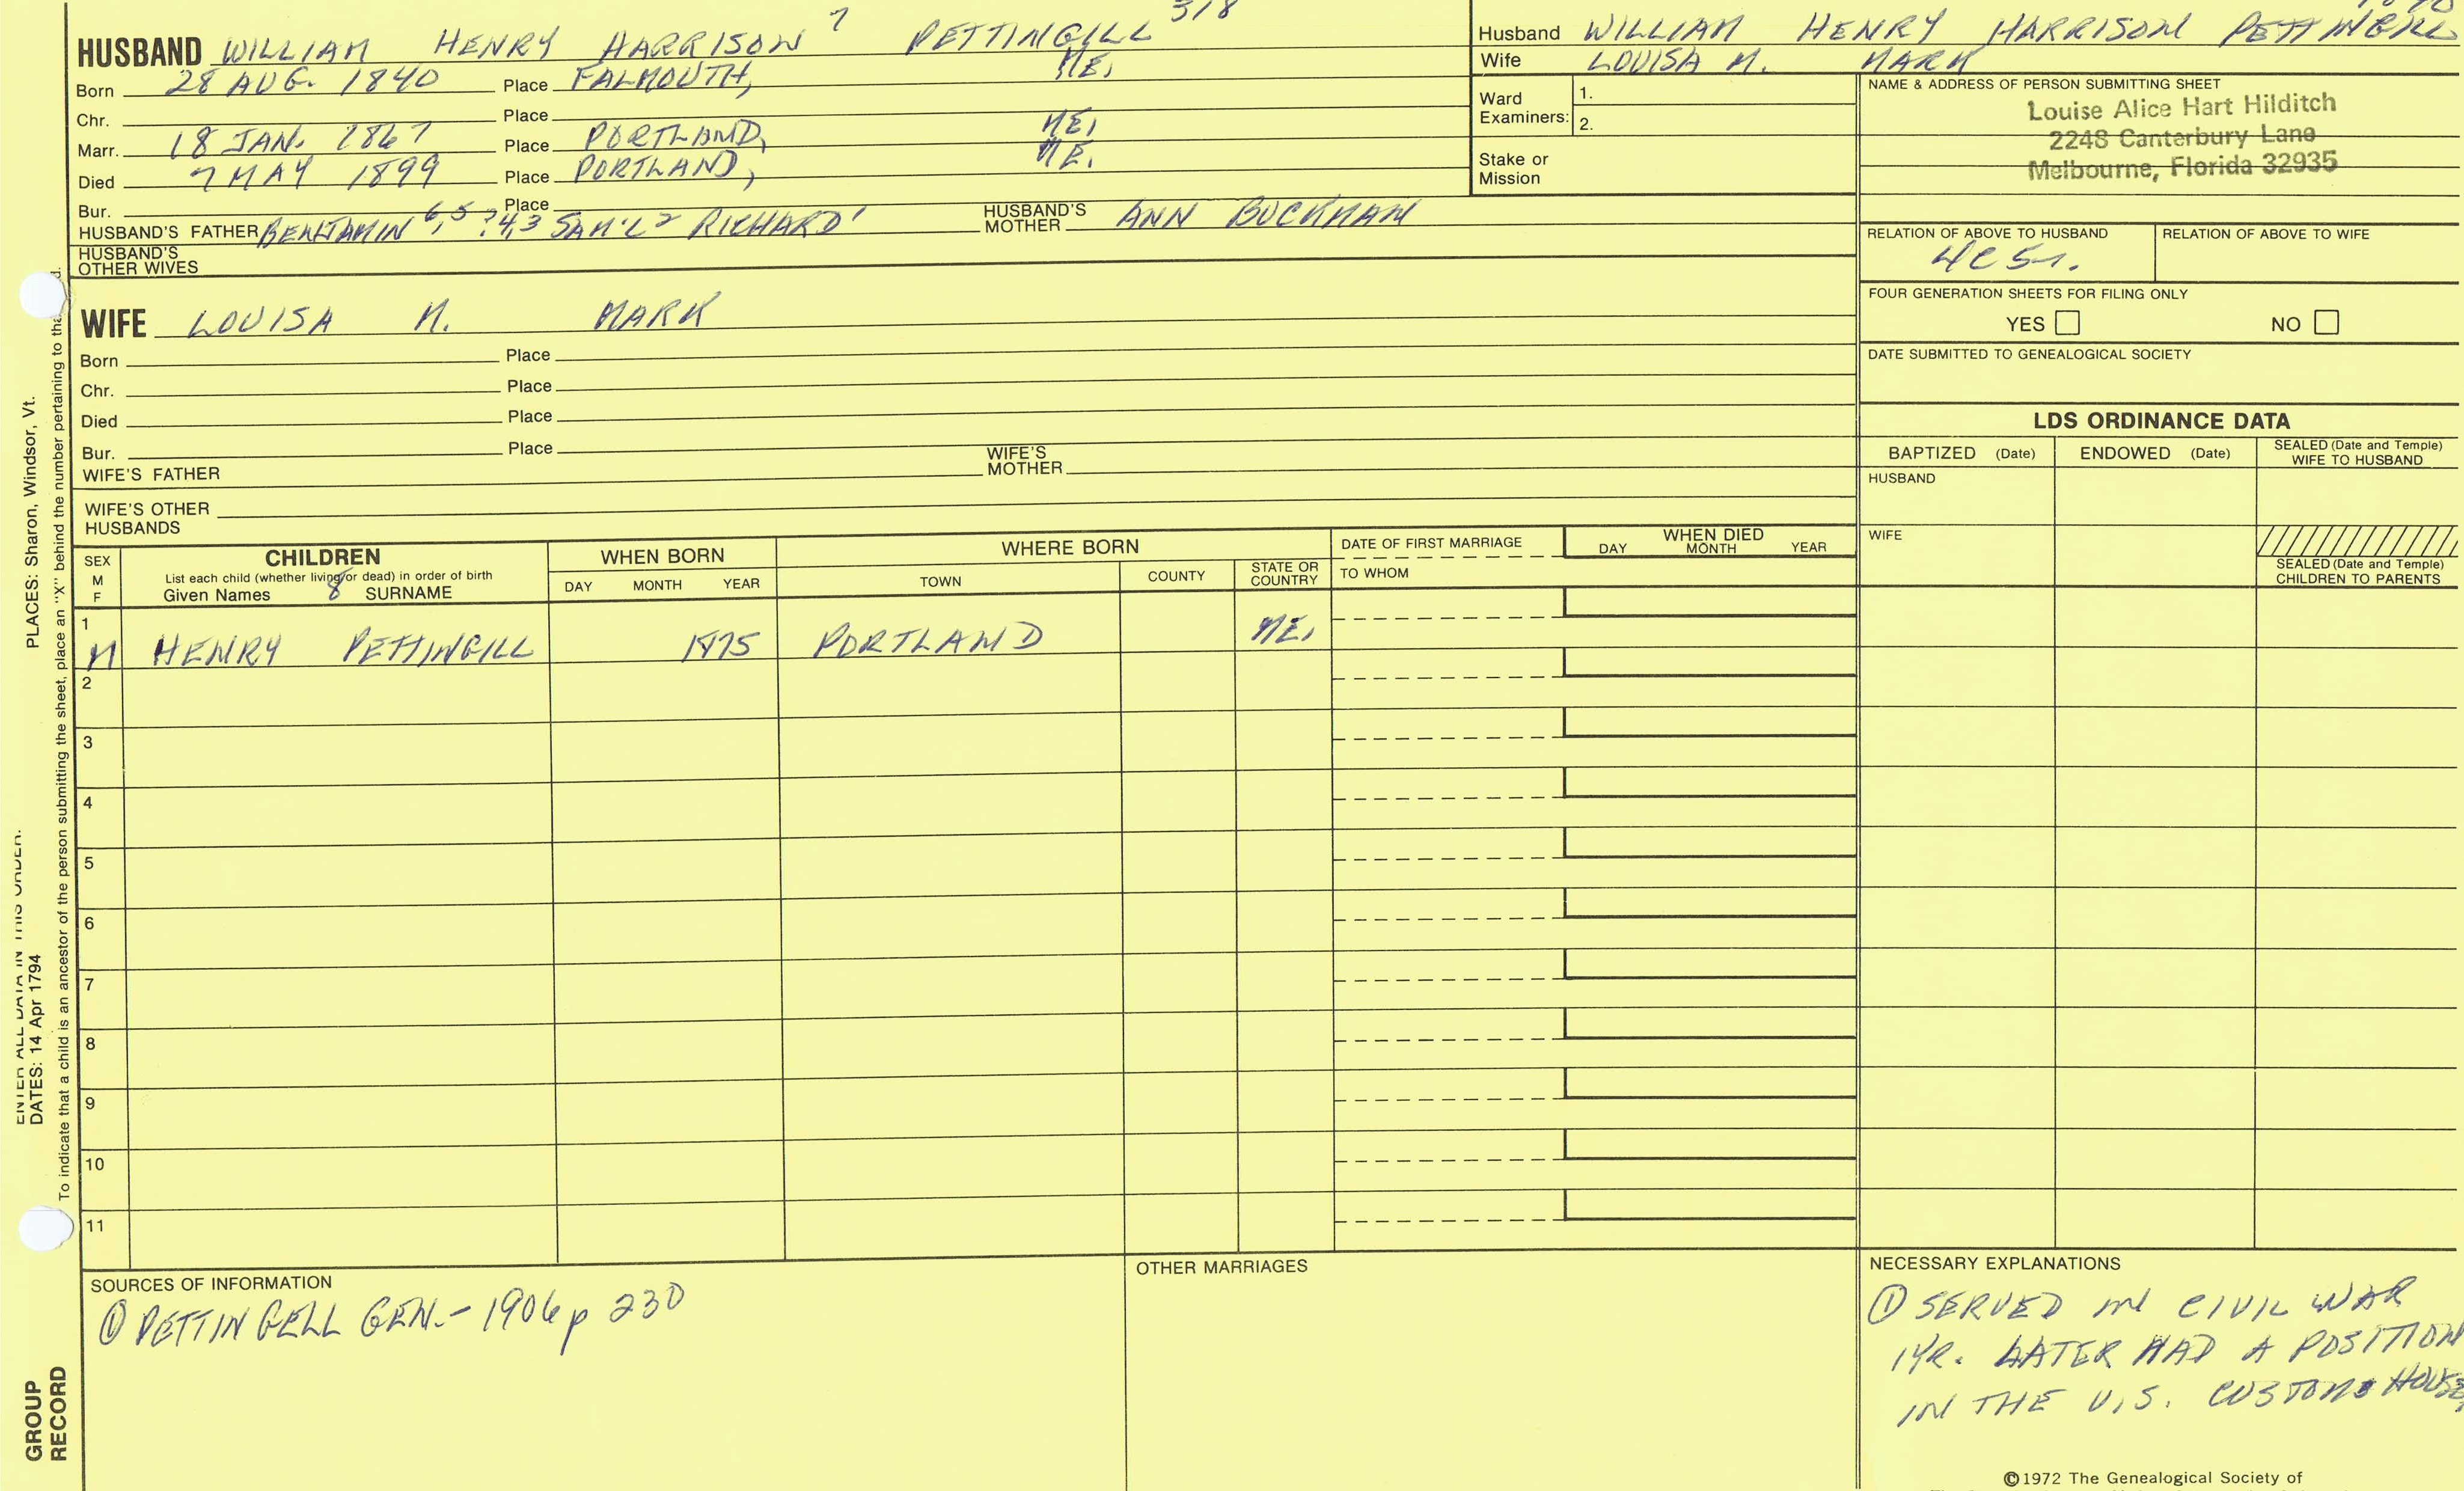 HUSBAND WILLIAM HENRY HARRISON 7 PETTINGILL 318
Born 28 AUG. 1840 Place FALMOUTH, ME,
Chr. Place
Marr. 18 JAN. 1867 Place PORTLAND, ME,
Died 7 MAY 1899 Place PORTLAND, ME.
Bur. Place
HUSBAND'S FATHER BENJAMIN 6, 5 ? 4,3 SAM'L 2 RICHARD 1 HUSBAND'S MOTHER ANN BUCKNAM
HUSBAND'S
OTHER WIVES
WIFE LOUISA M. MARK
Born Place
Chr. Place
Died Place
Bur. Place
WIFE'S FATHER WIFE'S MOTHER
WIFE'S OTHER
HUSBANDS
Husband WILLIAM HENRY HARRISON PETTINGILL
Wife LOUISA M. MARK
Ward
Examiners:
1.
2.
Stake or
Mission
NAME & ADDRESS OF PERSON SUBMITTING SHEET
Louise Alice Hart Hilditch
2248 Canterbury Lane
Melbourne, Florida 32935
RELATION OF ABOVE TO HUSBAND RELATION OF ABOVE TO WIFE
4C 5r.
FOUR GENERATION SHEETS FOR FILING ONLY
YES NO
DATE SUBMITTED TO GENEALOGICAL SOCIETY
LDS ORDINANCE DATA
BAPTIZED (Date) ENDOWED (Date) SEALED (Date and Temple)
WIFE TO HUSBAND
HUSBAND
WIFE
SEALED (Date and Temple)
CHILDREN TO PARENTS
SEX
M
F
CHILDREN
List each child (whether living or dead) in order of birth
Given Names 8 SURNAME
WHEN BORN
DAY MONTH YEAR
WHERE BORN
TOWN COUNTY STATE OR
COUNTRY
DATE OF FIRST MARRIAGE
TO WHOM
WHEN DIED
DAY MONTH YEAR
1
M HENRY PETTINGILL 1875 PORTLAND ME,
2
3
4
5
6
7
8
9
10
11
SOURCES OF INFORMATION
① PETTINGELL GEN.- 1906 p 230
OTHER MARRIAGES
NECESSARY EXPLANATIONS
① SERVED IN CIVIL WAR
1YR. LATER HAD A POSITION
IN THE U.S. CUSTOMS HOUSE
©1972 The Genealogical Society of
ENTER ALL DATA IN THIS ORDER:
DATES: 14 Apr 1794 PLACES: Sharon, Windsor, Vt.
To indicate that a child is an ancestor of the person submitting the sheet, place an "X" behind the number pertaining to
GROUP
RECORD